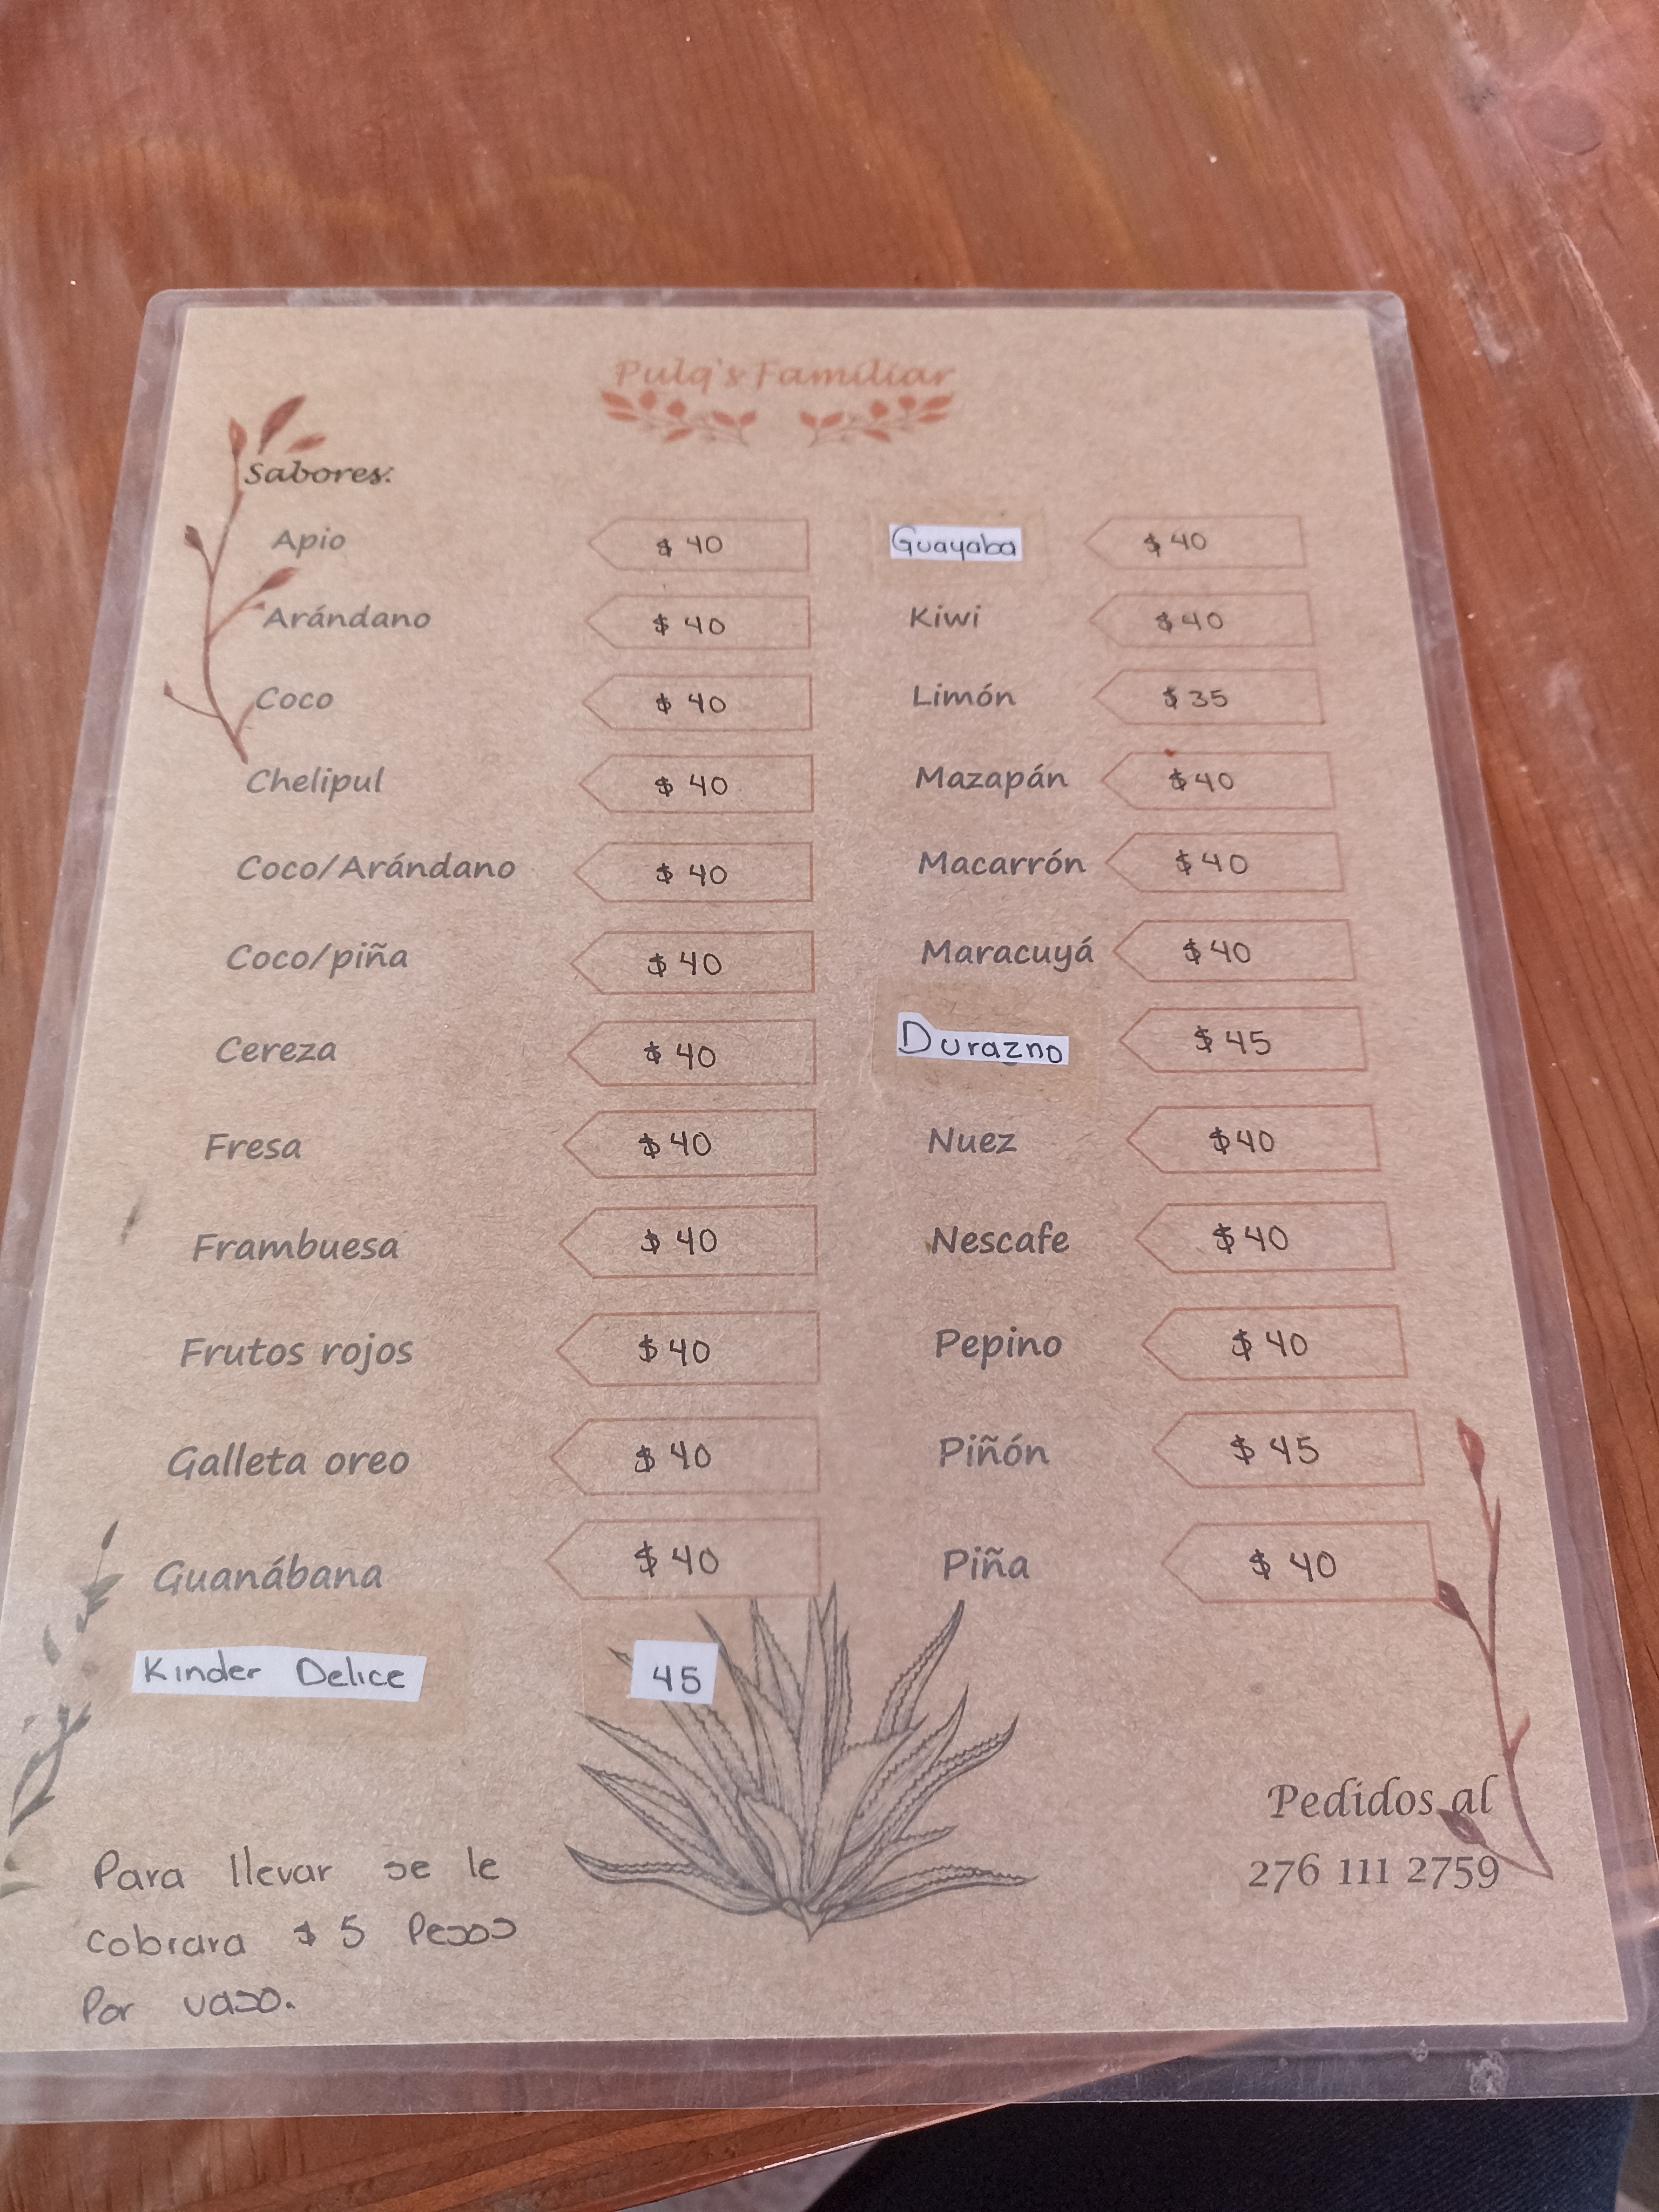 Pulq's Familiar
Sabores:
Apio $ 40
Arándano $ 40
Coco $ 40
Chelipul $ 40
Coco/Arándano $ 40
Coco/piña $ 40
Cereza $ 40
Fresa $ 40
Frambuesa $ 40
Frutos rojos $ 40
Galleta oreo $ 40
Guanábana $ 40
Kinder Delice 45
Guayaba $ 40
Kiwi $ 40
Limón $ 35
Mazapán $ 40
Macarrón $ 40
Maracuyá $ 40
Durazno $ 45
Nuez $ 40
Nescafe $ 40
Pepino $ 40
Piñón $ 45
Piña $ 40
Para llevar se le
cobrara $ 5 Pesos
Por vaso.
Pedidos al
276 111 2759